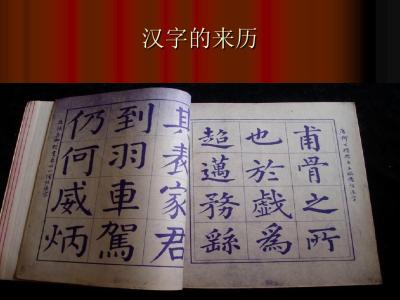 汉字的来历
甫骨之所
也於戲為
超邁務繇
其表家君
到羽車駕
仍何威炳